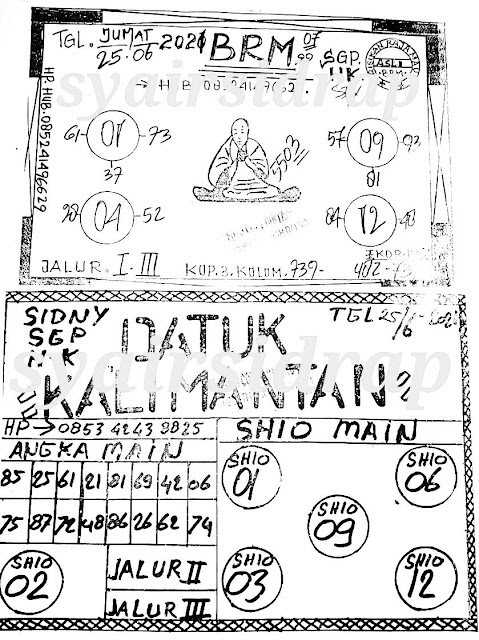 TGL. JUMAT 25.06 2021 BRM 07 99
SGP. HK
ASLI
HP. HUB. 085241496629
61- 01 -73
37
57 09 93
01
28 04 -52
04 12 40
5503
JALUR. I - III
KOP. 3. KOLOM. 739-
syairsidrap
SIDNY
SGP
HK
TGL 25/6-2021
DATUK
KALIMANTAN
syairsidrap
HP → 0853 4243 8825
SHIO MAIN
ANGKA MAIN
85 25 61 21 81 69 42 06
75 87 72 48 86 26 62 74
SHIO 01
SHIO 06
SHIO 09
SHIO 02
JALUR II
JALUR III
SHIO 03
SHIO 12